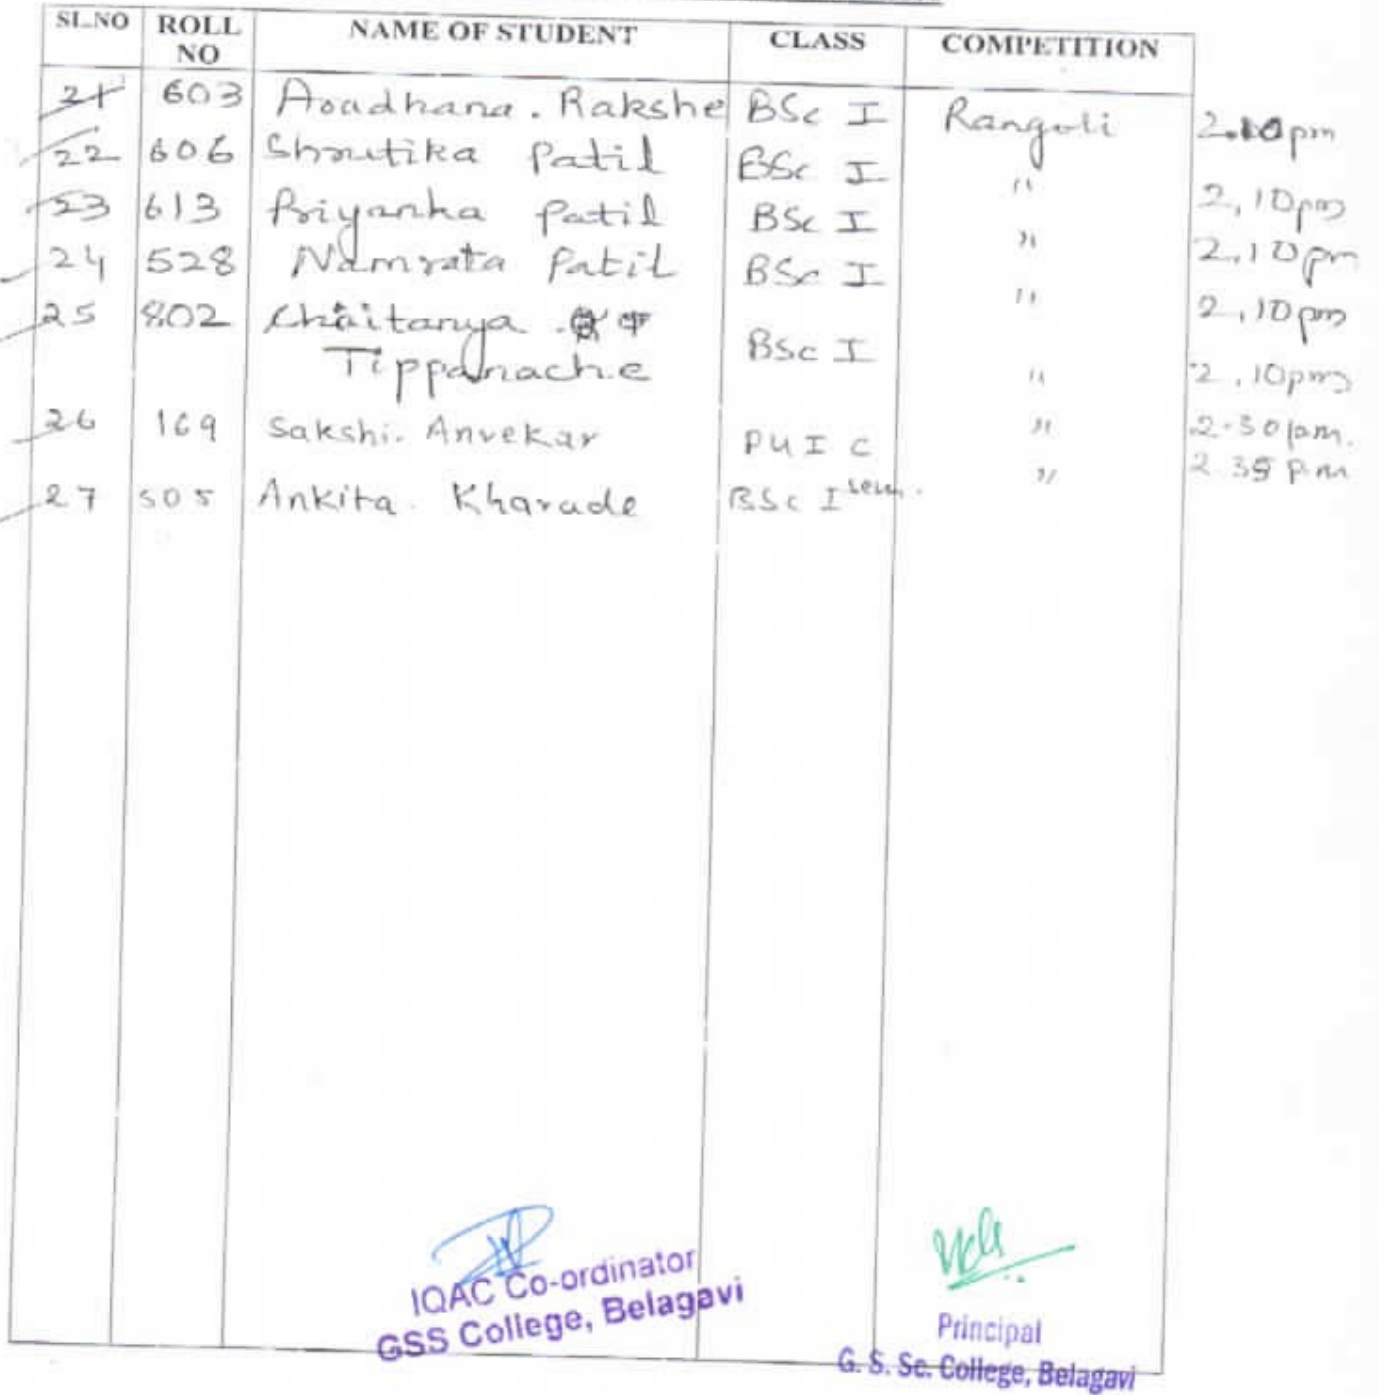 SL.NO ROLL NO NAME OF STUDENT CLASS COMPETITION
21 603 Aradhana. Rakshe BSc I Rangoli 2.10pm
22 606 Shrutika Patil BSc I " 2,10pm
23 613 Priyanka Patil BSc I " 2,10pm
24 528 Namrata Patil BSc I " 2,10pm
25 802 Chaitanya
Tippanache BSc I " 2.10pm
26 169 Sakshi. Anvekar PU I C " 2.30pm.
27 505 Ankita. Kharade BSc I sem. " 2.35 p.m
IQAC Co-ordinator
GSS College, Belagavi
Principal
G. S. Sc. College, Belagavi